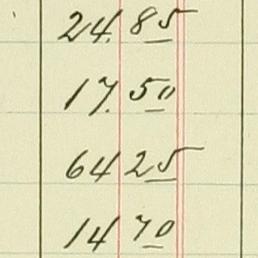 24.85
17.50
64 25
14 70